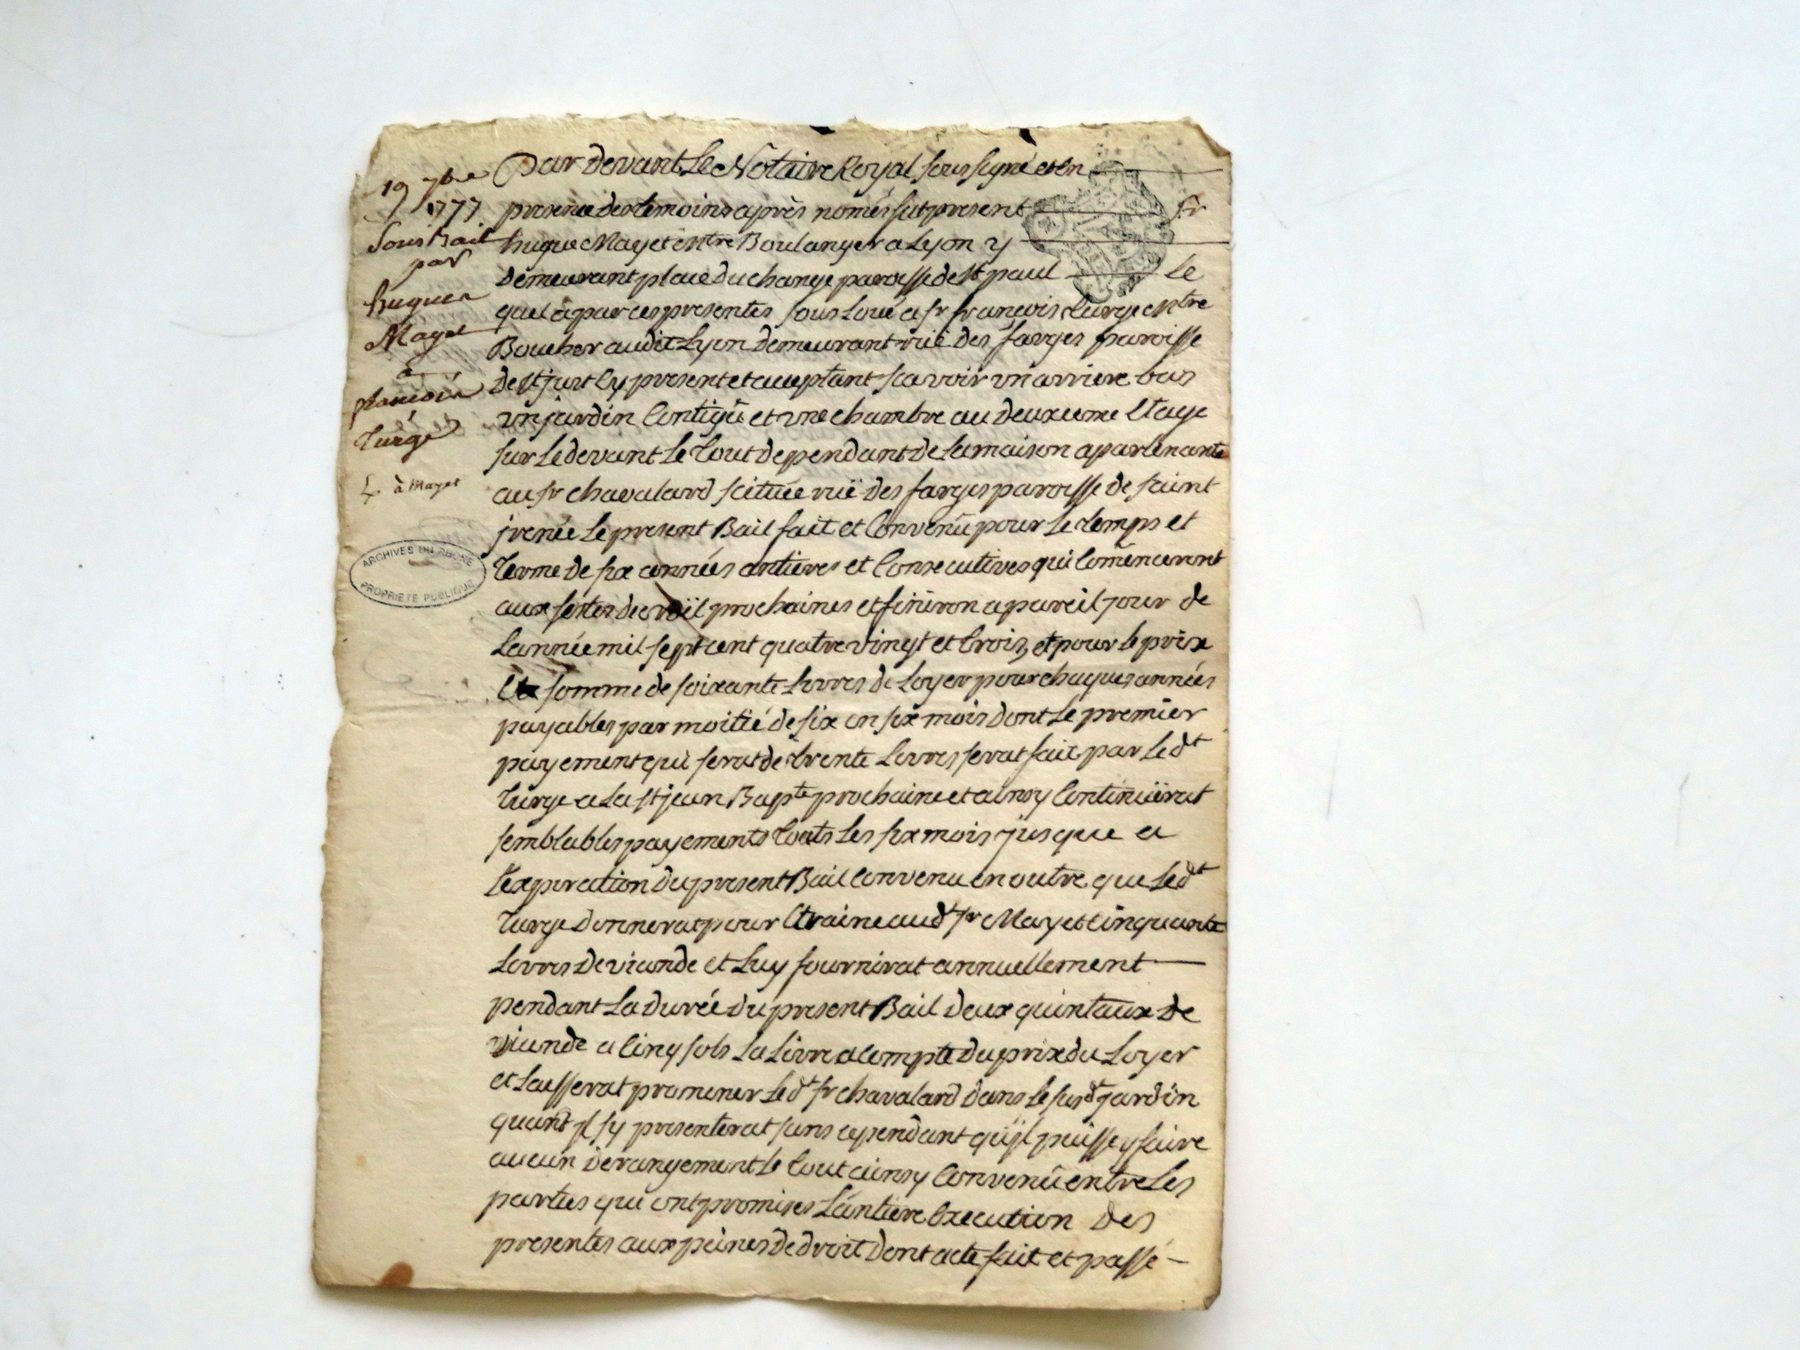 19 7bre
1777
Sous Bail
par
hugues
Mayet
à
françois
Turge
à Mayet
ARCHIVES DU RHONE
PROPRIETE PUBLIQUE
Par devant Le Notaire Royal soussigné et en
presence des temoins après només fut present sr
hugue Mayet Mtre Boulanger a Lyon y
demeurant place du change paroisse de st paul Le
quel a par ces presentes sous Loué a sr françois Turge Mtre
Boucher audit Lyon demeurant ruë des farges paroisse
de st just Cy present et acceptant scavoir un arriere bas
un jardin Contigü et une chambre au deuxieme Etage
sur Le devant Le tout dependant de La maison apartenante
au sr chavalard scituée ruë des farges paroisse de saint
jrenée Le present Bail fait et Convenû pour Le temps et
terme de six années antieres et Consecutives qui Comenceront
aux festes de noël prochaines et finiron a pareil jour de
L'année mil sept cent quatre vingt et trois, et pour Le prix
Et somme de soixante Livres de Loyer pour chaques années
payables par moitié de six en six mois dont Le premier
payement qui serat de trente Livres serat fait par Le dt
Turge a La st jean Bapte prochaine et ainsy Continüerat
semblables payements touts Les six mois jusque a
L'expiration du present Bail Convenu en outre que Le dt
Turge donnerat pour Etraine aud sr Mayet Cinquante
Livres de viande et Luy fournirat annuellement
pendant La durée du present Bail deux quintaux de
viande a Cinq sols La Livre a Compte du prix du Loyer
et Laisserat promener Le dt sr chavalard dans Le susdt jardin
quant jl sy presenterat sans cependant qu'jl puisse y faire
aucun derangement Le tout ainsy Convenû entre Les
parties qui ont promises L'antiere Execution des
presentes aux peines de droit dont acte fait et passé